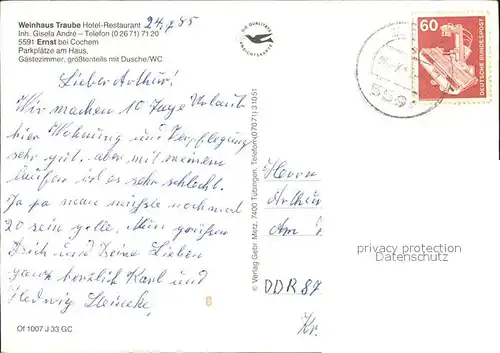 Weinhaus Traube Hotel-Restaurant
Inh. Gisela André – Telefon (0 26 71) 71 20
5591 Ernst bei Cochem
Parkplätze am Haus,
Gästezimmer, größtenteils mit Dusche/WC
24.7.85
Lieber Arthur!
Wir machen 10 Tage Urlaub
hier Wohnung und Verpflegung
sehr gut, aber mit meinem
laufen ist es sehr schlecht.
Ja ja man müßte nochmal
20 sein gelle. Nun grüßen
Dich und Deine Lieben
ganz herzlich Karl und
Hedwig
Of 1007 J 33 GC
DIE QUALITÄTS
ANSICHTSKARTE
© Verlag Gebr. Metz, 7400 Tübingen, Telefon (0 70 71) 3 10 51
60
DEUTSCHE BUNDESPOST
Herrn
Arthur
Am
privacy protection
Datenschutz
DDR 87
Kr.